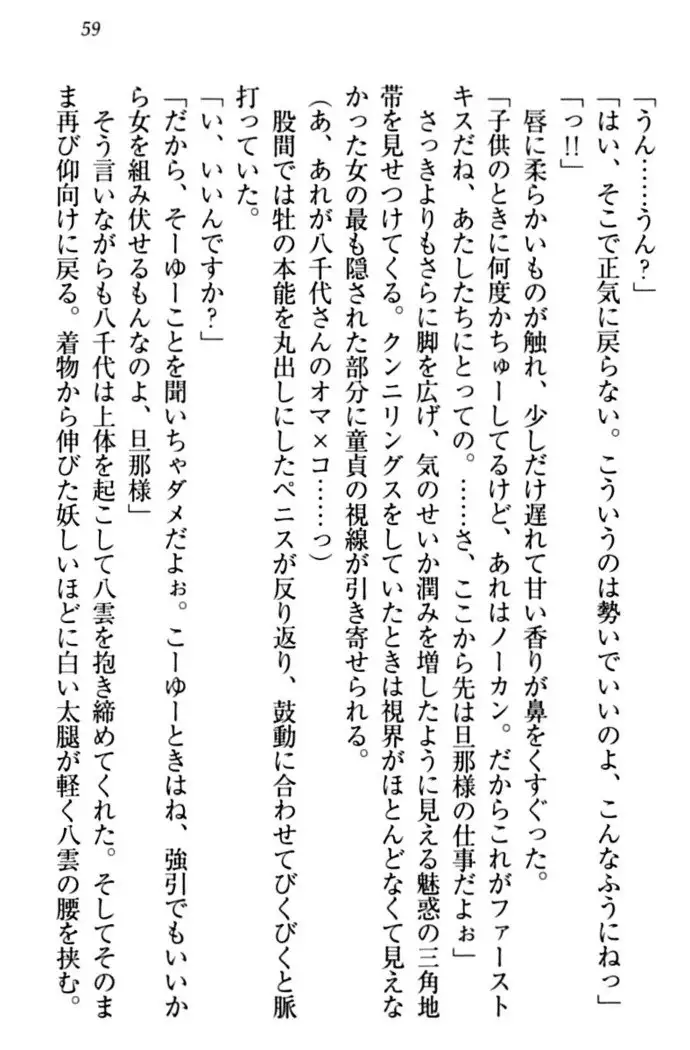 59
「うん……うん？」
「はい、そこで正気に戻らない。こういうのは勢いでいいのよ、こんなふうにねっ」
「っ!!」
　唇に柔らかいものが触れ、少しだけ遅れて甘い香りが鼻をくすぐった。
「子供のときに何度かちゅーしてるけど、あれはノーカン。だからこれがファースト
キスだね、あたしたちにとっての。……さ、ここから先は旦那様の仕事だよぉ」
　さっきよりもさらに脚を広げ、気のせいか潤みを増したように見える魅惑の三角地
帯を見せつけてくる。クンニリングスをしていたときは視界がほとんどなくて見えな
かった女の最も隠された部分に童貞の視線が引き寄せられる。
（あ、あれが八千代さんのオマ×コ……っ）
　股間では牡の本能を丸出しにしたペニスが反り返り、鼓動に合わせてびくびくと脈
打っていた。
「い、いいんですか？」
「だから、そーゆーことを聞いちゃダメだよぉ。こーゆーときはね、強引でもいいか
ら女を組み伏せるもんなのよ、旦那様」
　そう言いながらも八千代は上体を起こして八雲を抱き締めてくれた。そしてそのま
ま再び仰向けに戻る。着物から伸びた妖しいほどに白い太腿が軽く八雲の腰を挟む。